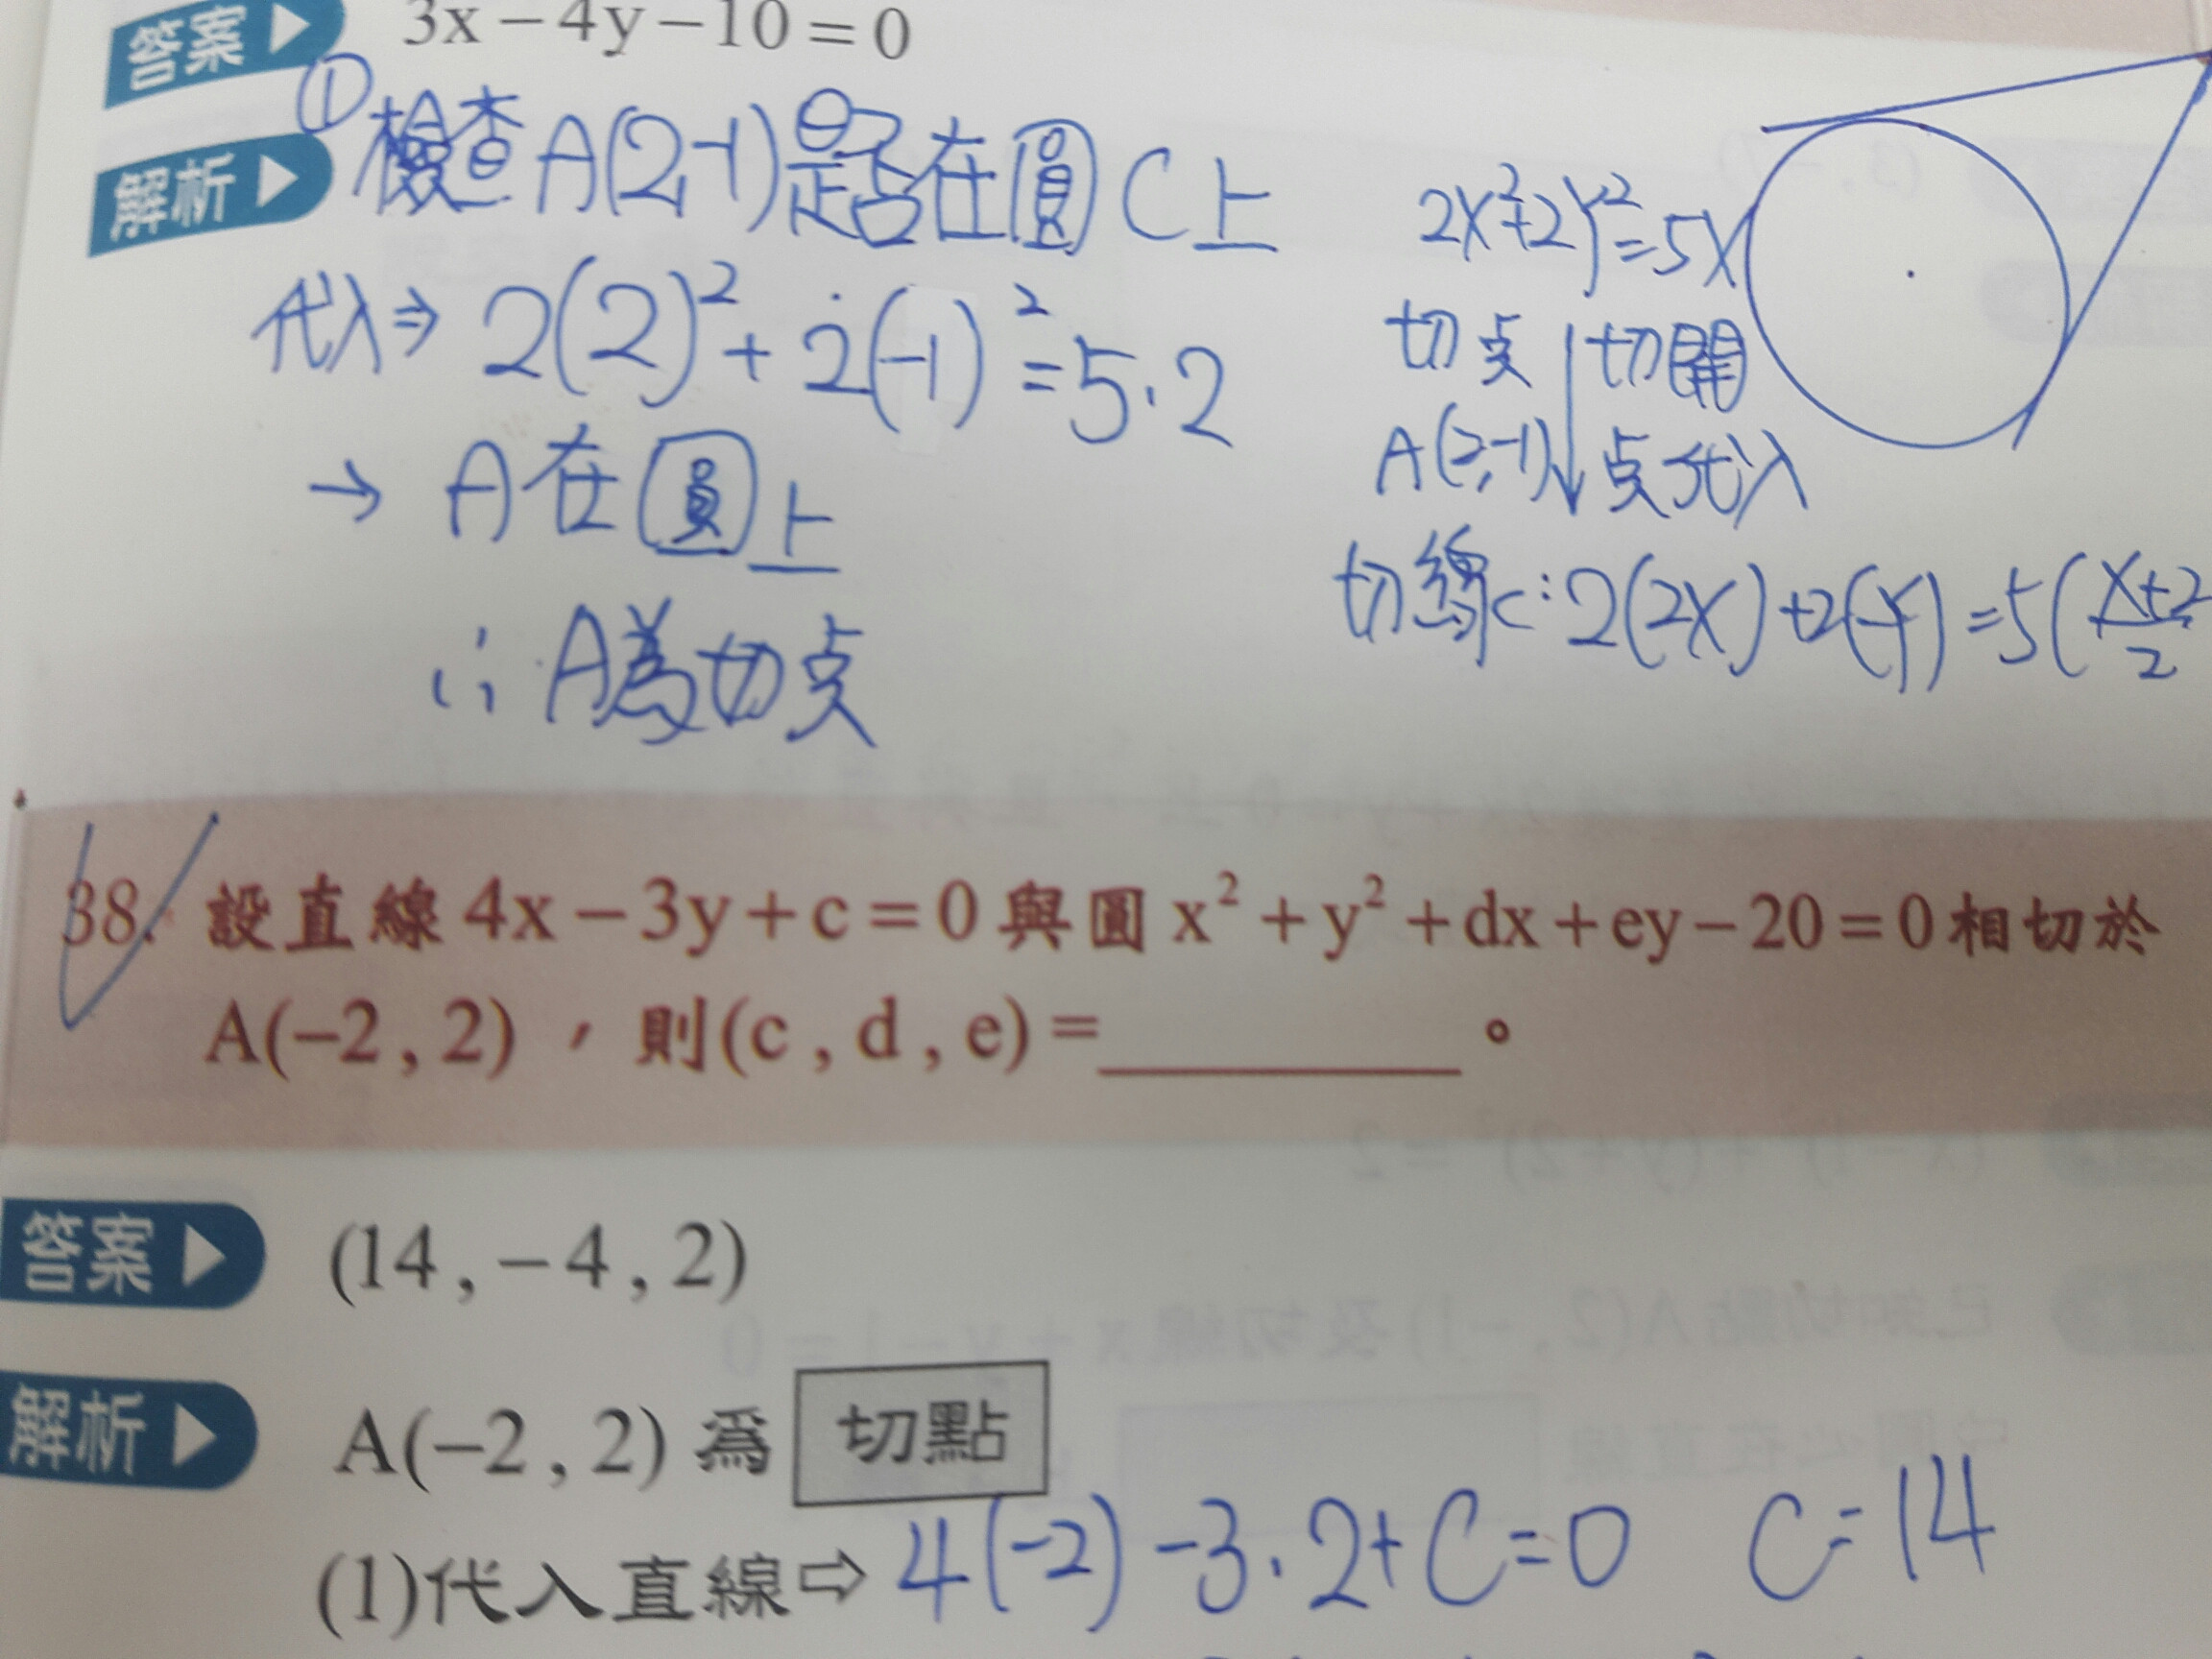 答案 3x－4y－10＝0
解析 ①檢查A(2,-1)是否在圓C上
代入⇒ 2(2)²+2(-1)²=5·2
→ A在圓上
∴ A為切点
2x²+2y²=5x
切点 切開
A(2,-1) 点代入
切線: 2(2x)+2(-y)=5(x+2/2
38. 設直線 4x－3y＋c＝0 與圓 x²＋y²＋dx＋ey－20＝0 相切於
A(−2 , 2) ，則(c , d , e)＝________。
答案 (14 , －4 , 2)
解析 A(−2 , 2) 為 切點
(1)代入直線⇨ 4(-2)-3·2+C=0 C=14